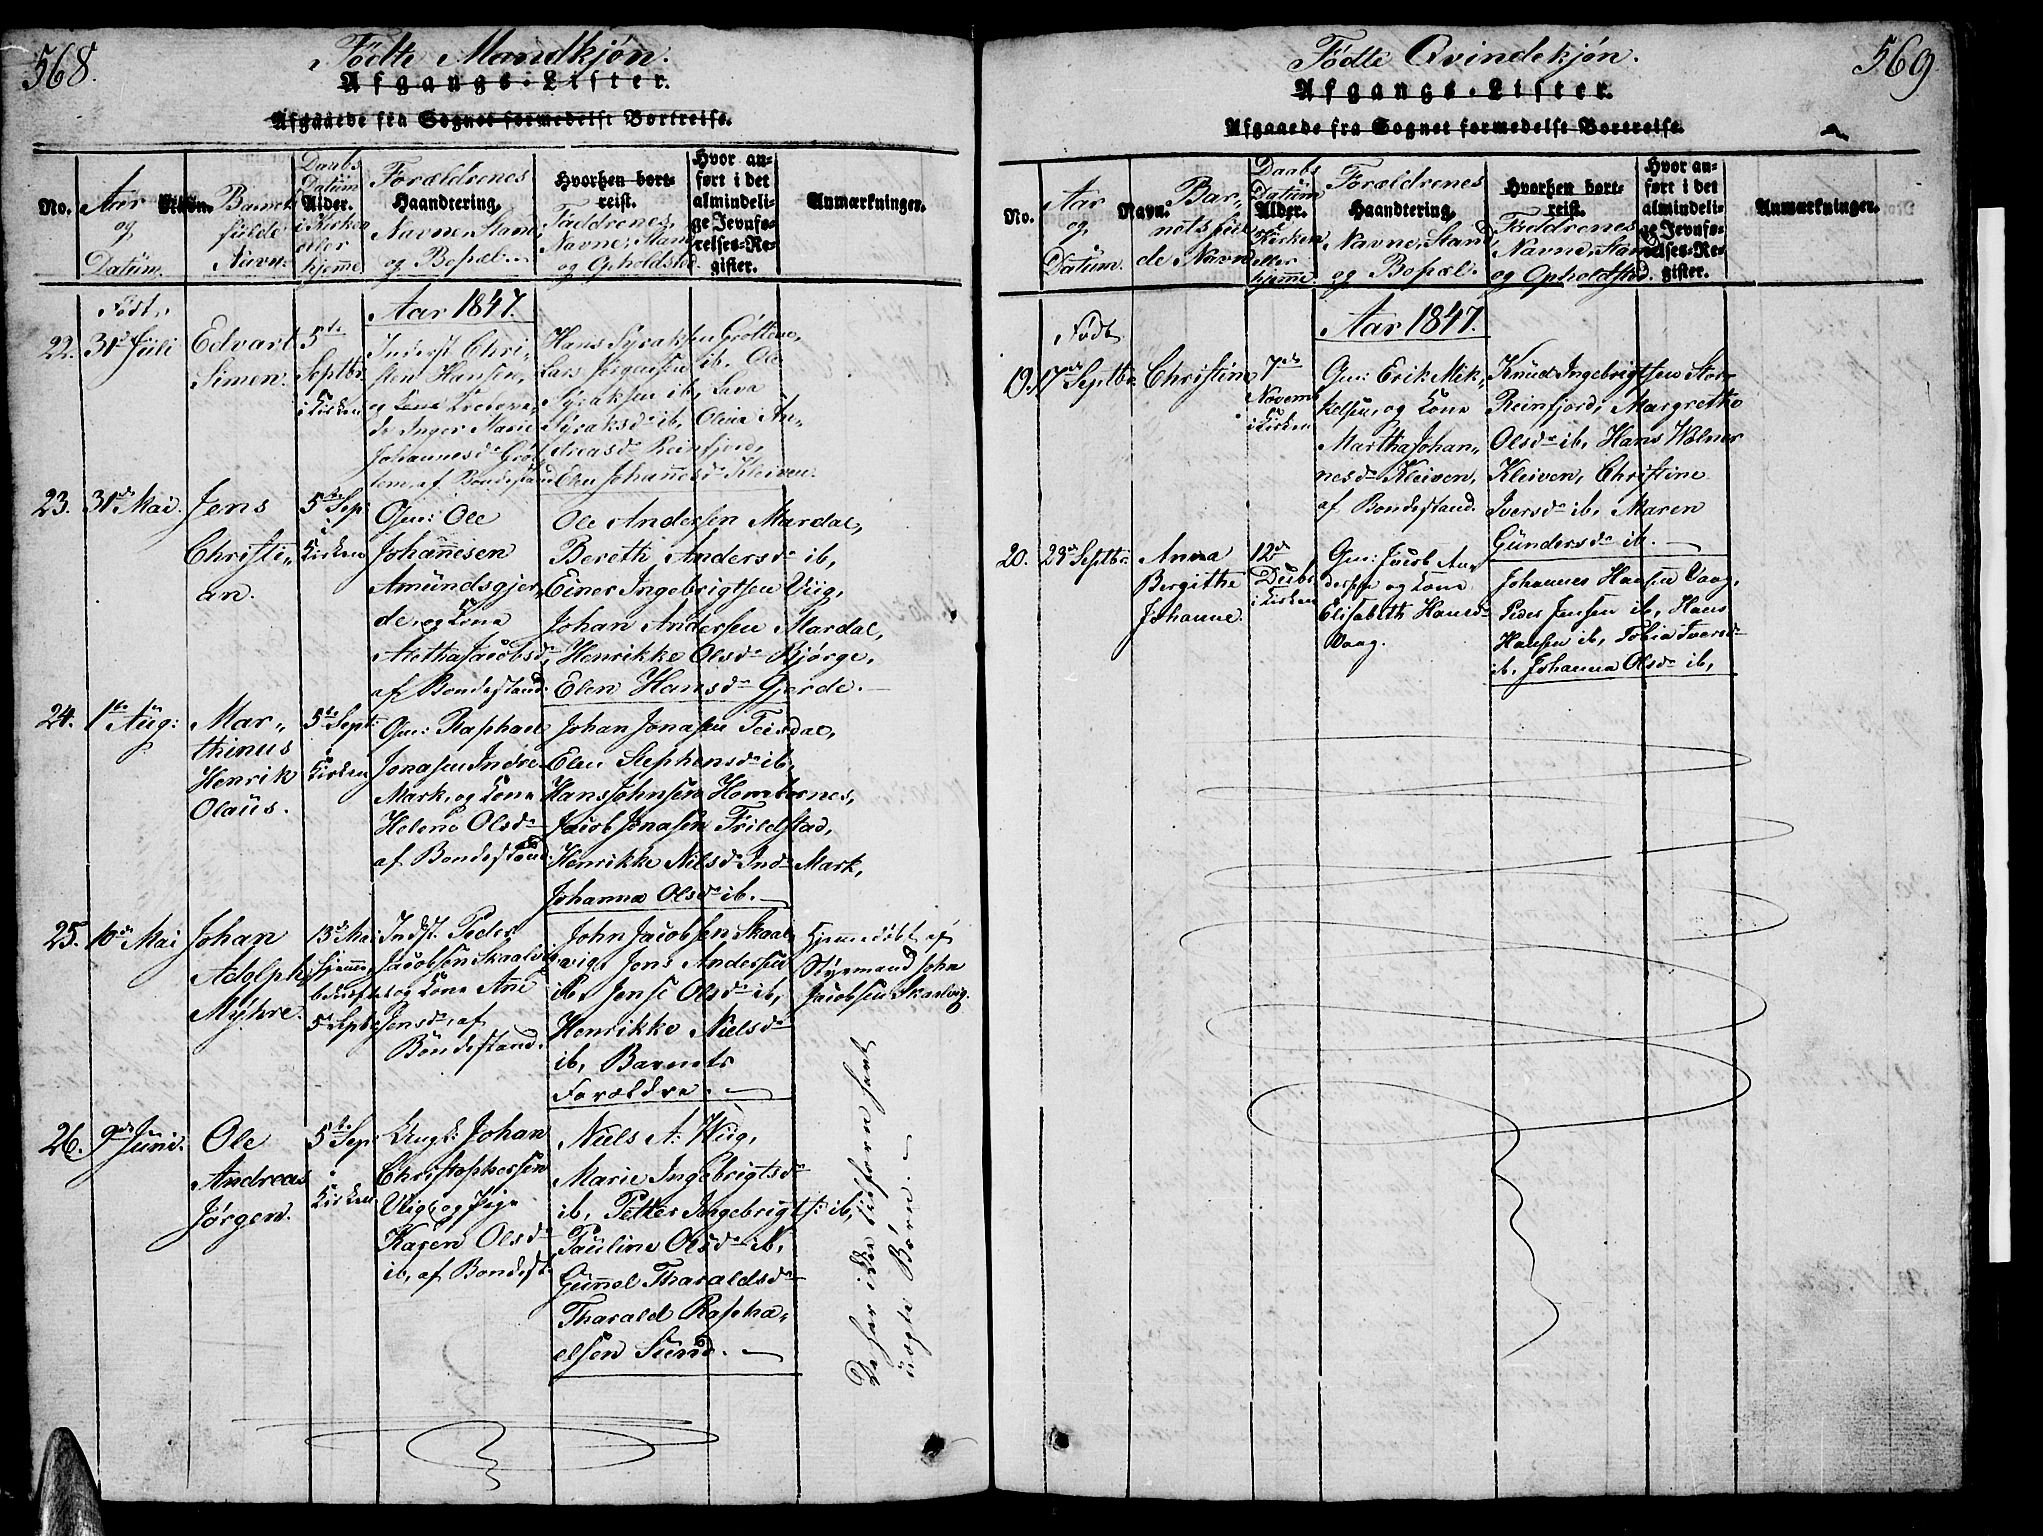 568.
Födte Mandkjøn.
Afgangs-Lister.
Afgaaede fra Sognet formedelst Bortreise.
No.
Aar
og
Datum.
Barnets
fulde
Navn.
Daabs
Datum
Alder.
i Kirken
eller
hjemme
Forældrenes
Haandtering.
Navne, Stand
og Bopæl.
Hvorhen bort-
reist.
Faddrenes
Navne, Stand
og Opholdsted.
Hvor an-
ført i det
almindeli-
ge Jevnfø-
relses-Re-
gister.
Anmærkninger.
Født.
Aar 1847.
22.
31te Juli
Edvart
Simon.
5te
Septbr.
i Kirken
Inderst Chri-
sten Hansen,
Inger Marie
Johannesdr
af Bondestand
Hans Syraksen Gröttem,
Lars Jörgensen ib, Ole
Syraksen ib, Lena
Syraksdr ib, Olina An-
dreasdr Reinfjord,
Elen Johannesdr Kleiven.
23.
31te Mai.
Jens
Christi-
an.
5te Sep:
i
Kirken
Gm: Ole
Johannesen
Amundsgjer-
de, og Kona
Aletha Jacobsdr
af Bondestand.
Ole Andersen Mardal,
Bereth Andersdr ib,
Einer Ingebrigtsen Viig,
Johan Andersen Mardal,
Henrikke Olsdr Bjørge,
Elen Hansdr Gjerde.
24.
1te Aug:
Mar-
thinus
Henrik
Olaus.
5te Sept:
i
Kirken
Gm: Raphael
Jonasen Indre
Mark, og Kona
Helene Olsdr
af Bondestand.
Johan Jonasen Teisdal,
Elen Stephensdr ib,
Hans Johnsen Hombornes,
Jacob Jonasen Frildstad,
Henrikke Nilsdr Indr Mark,
Johanna Olsdr ib.
25.
10de Mai
Johan
Adolph
Myhre.
13de Mai
hjemme,
bekræftet
5te Septb
Indst. Peder
Jacobsen Skaalvig
og Kona Ane
Jensdr, af
Bondestand.
John Jacobsen Skaal-
vig, Jens Andersen
ib, Jense Olsdr ib,
Henrikke Nielsdr
ib, Barnets
Forældre.
Hjemmedøbt af
Styrmand John
Jacobsen Skaalvig.
26.
9de Juni.
Ole
Andreas
Jørgen.
5te Sep:
i
Kirken
Ungk: Johan
Christophersen
Viig, og Pige
Karen Olsdr
ib, af Bondest.
Niels A: Wiig,
Marie Ingebrigtsdr
ib, Petter Ingebrigts: ib,
Pauline Olsdr ib,
Gunnel Tharaldsdr
Tharald Rapha-
elsen Sund.
De har ikke tilforn havt
uægte Børn.
569
Födte Qvindekjön.
Afgangs-Lister.
Afgaaede fra Sognet formedelst Bortreise.
No.
Aar
og
Datum.
Navn.
Bar-
nets ful-
de Navn
Daabs
Datum
Alder.
i Kirken
eller
hjemme.
Forældrenes
Haandtering.
Navne, Stand
og Bopæl.
Hvorhen bort-
reist.
Faddrenes
Navne, Stand
og Opholdsted.
Hvor an-
ført i det
almindeli-
ge Jevnfø-
relses-Re-
gister.
Anmærkninger.
Født
Aar 1847.
19.
17de Septbr.
Christine
7de
Novemb
i Kirken
Gm: Erik Mik-
kelsen, og Kona
Martha Johan-
nesdr Kleiven,
af Bondestand.
Knud Ingebrigtsen Stor
Reinfjord, Margrethe
Olsdr ib, Hans Wolner
Kleiven, Christine
Iversdr ib, Maren
Gundersdr ib.
20.
28de Septbr.
Anna
Bergithe
Johanne.
12te
Decbr
i Kirken
Gm: Jacob An-
dersen og Kona
Elisabeth Hansdr
Vaag.
Johannes Hansen Vaag,
Peder Jensen ib, Hans
Hansen ib, Tobia Iversdr
ib, Johanna Olsdr ib,